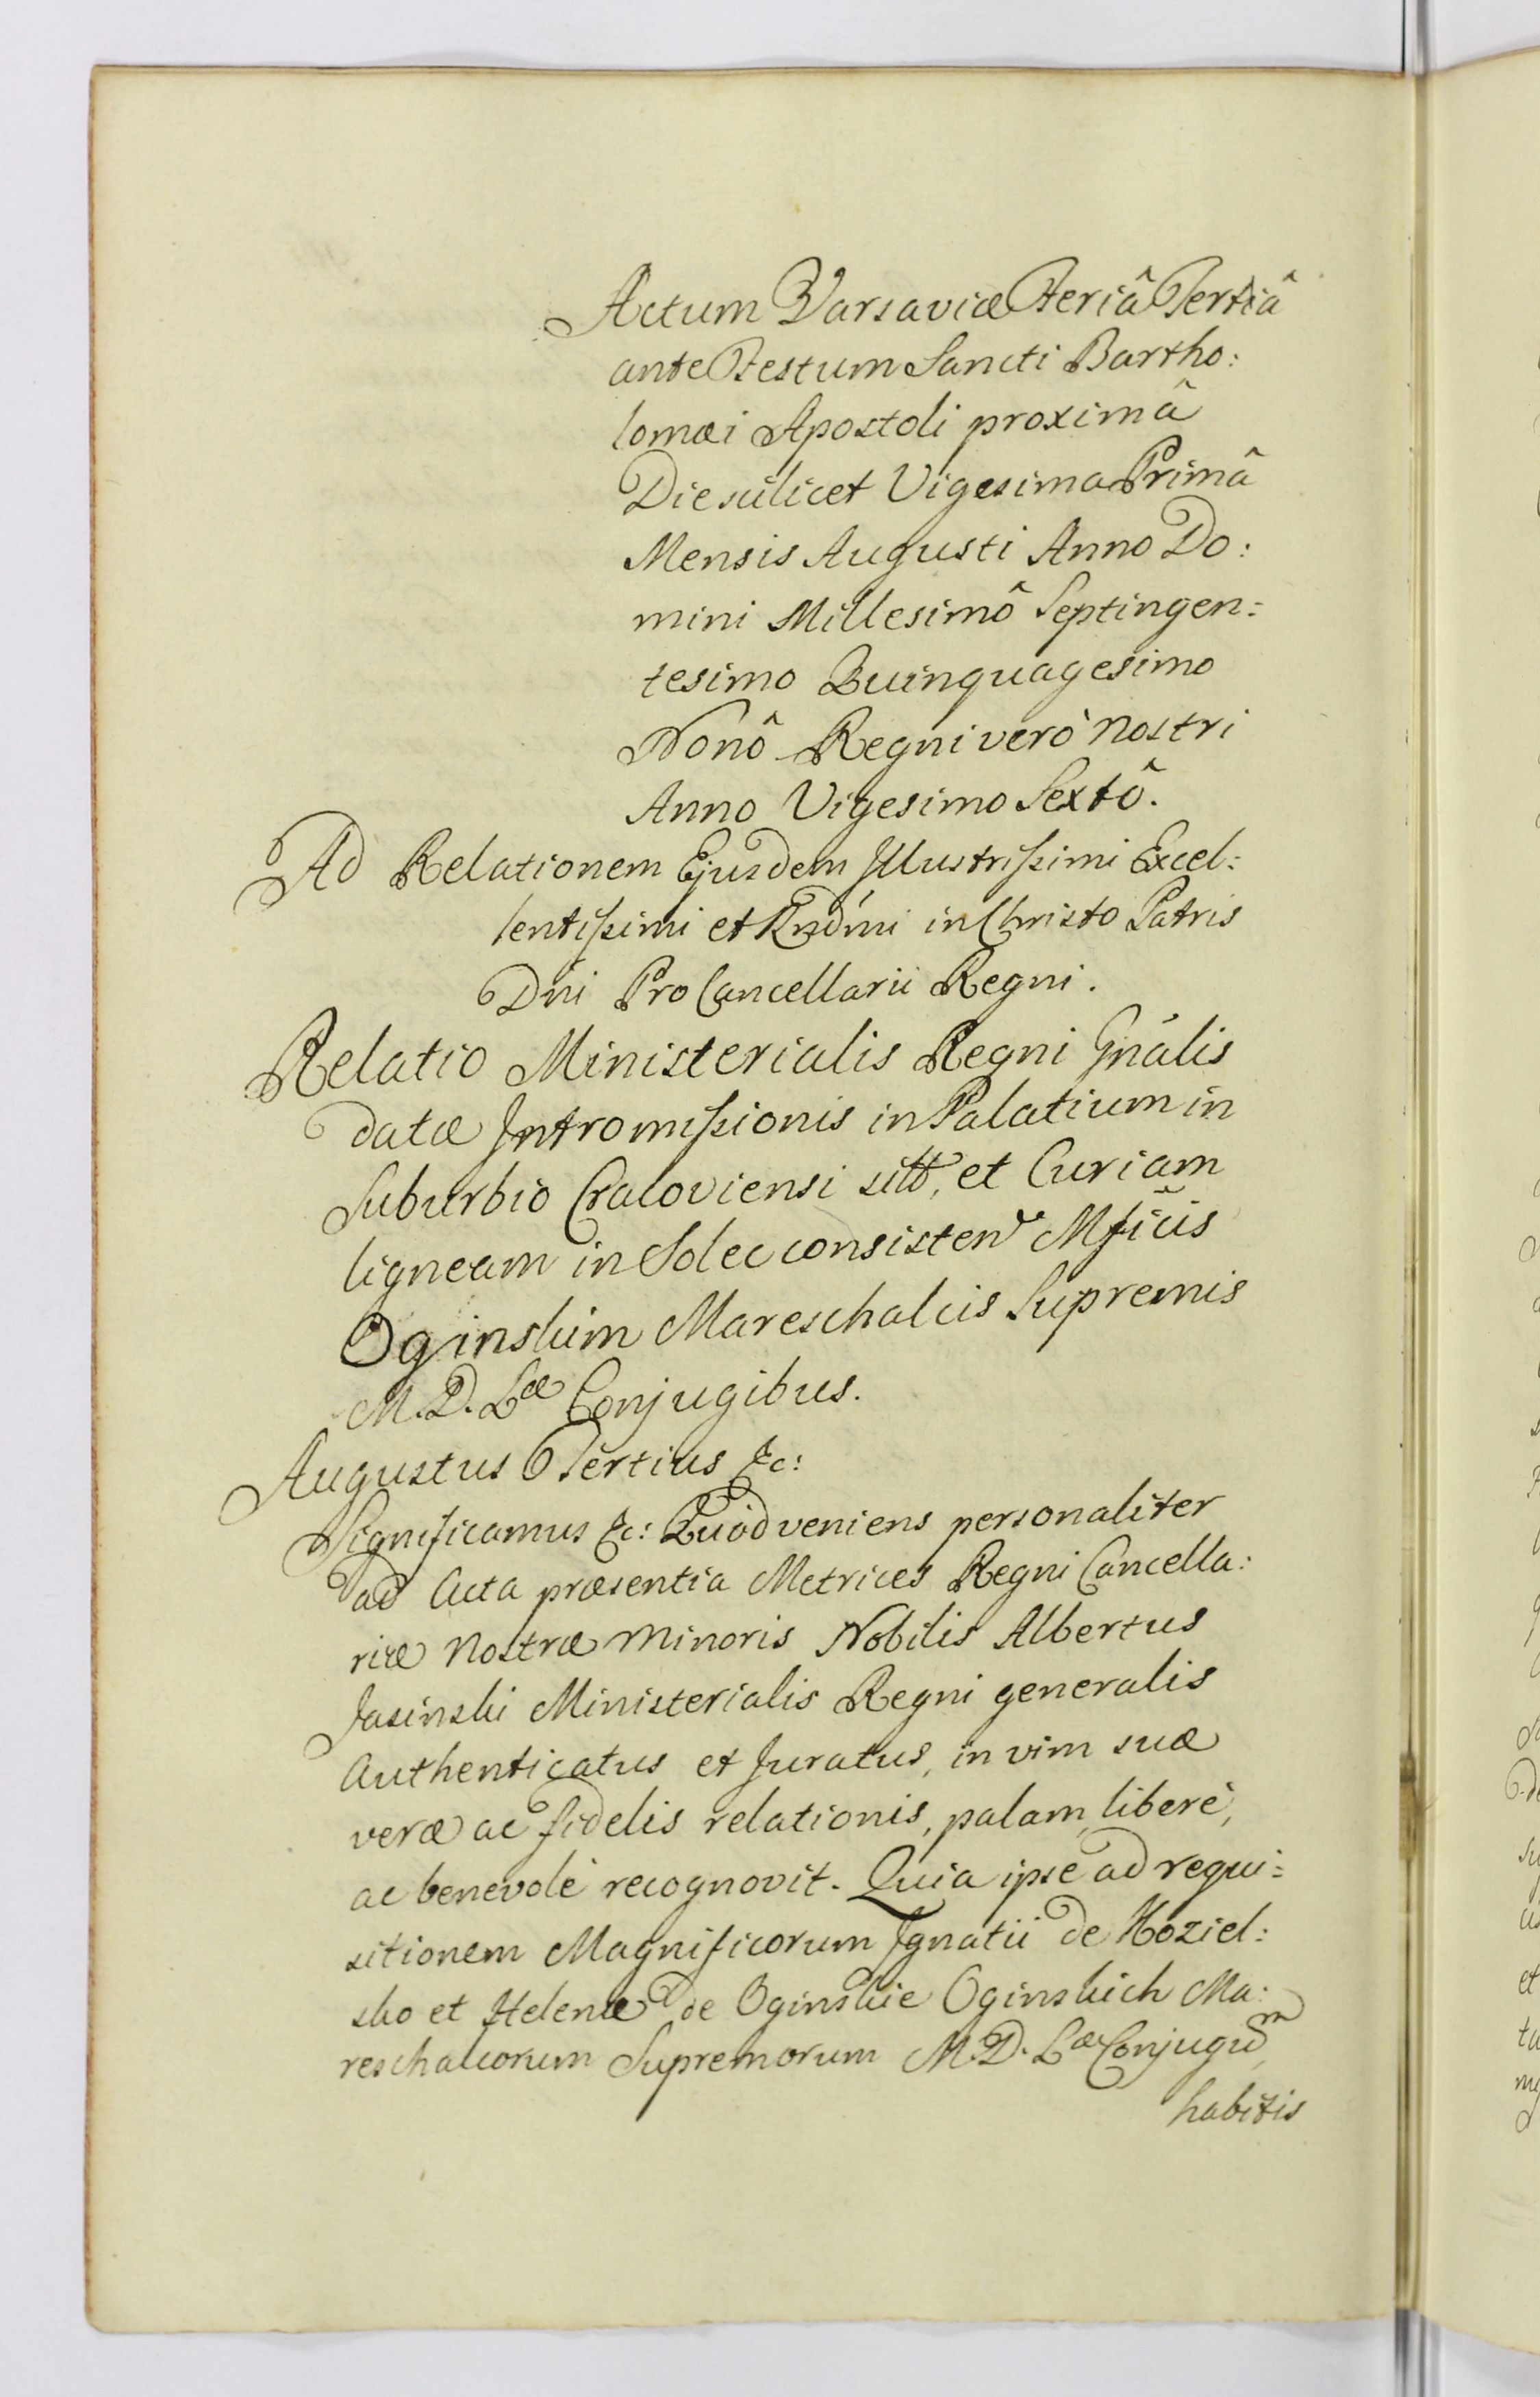 Actum Varsaviæ Feriâ Tertiâ
ante Festum Sancti Bartho:
lomæi Apostoli proximâ
Die scilicet Vigesima Primâ
Mensis Augusti Anno Do:
mini Millesimô Septingen:
tesimo Quinquagesimo
Nonô Regni verò Nostri
Anno Vigesimo Sextô.
Ad Relationem Ejusdem Illustrissimi Excel:
lentissimi et Rndm̃i in Christo Patris
Dni Pro Cancellarii Regni.
Relatio Ministerialis Regni Gnãlis
datæ Intromissionis in Palatium in
Suburbio Cracoviensi sitt, et Curiam
ligneam in Solec consisten Mficis
Oginskim Mareschalcis Supremis
M. D. Læ Conjugibus.
Augustus Tertius &c:
Significamus &c: Quòd veniens personaliter
ad Acta præsentia Metrices Regni Cancella:
riæ Nostræ Minoris Nobilis Albertus
Jasinski Ministerialis Regni generalis
Authenticatus et Juratus, in vim suæ
veræ ac fidelis relationis, palam, liberè,
ac benevolè recognovit. Quia ipse ad requi:
sitionem Magnificorum Ignatii de Koziel:
sko et Helenæ de Oginskie Oginskich Ma:
reschalcorum Supremorum M. D. Læ Conjugum,
habitis